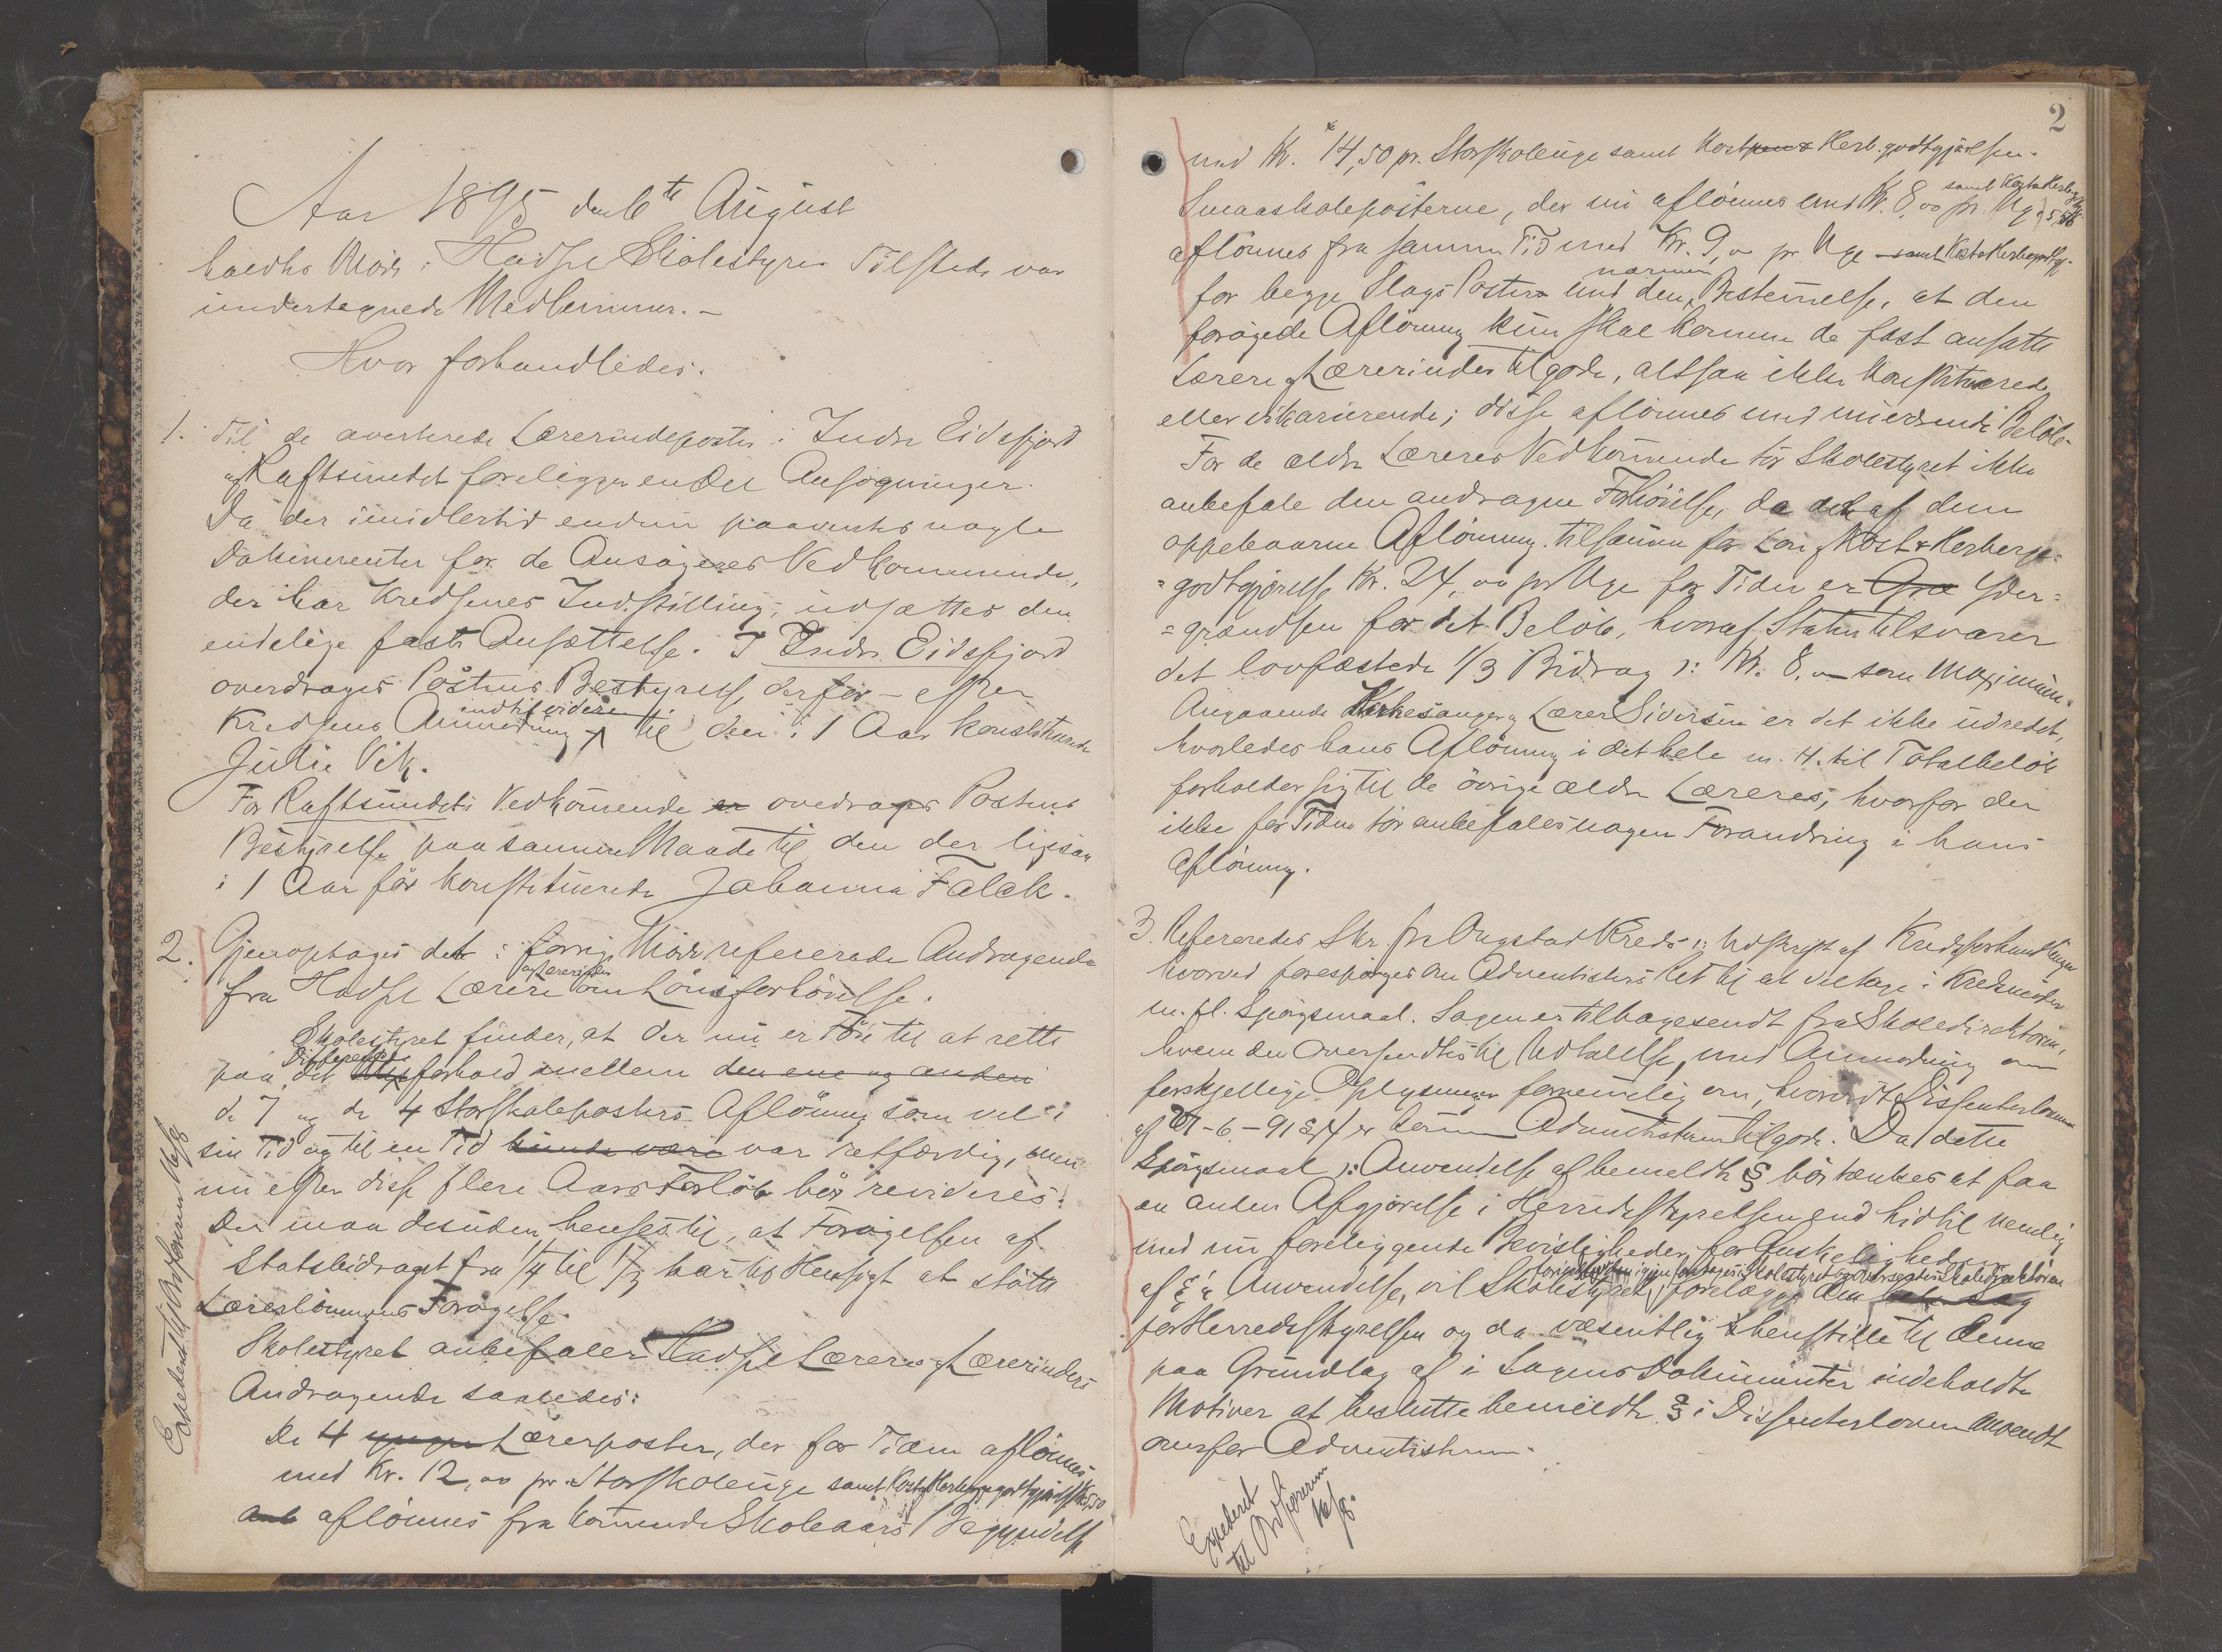 Aar 1895 den 6te August
holdtes Møde i Hadsel Skolestyre. Tilstede var
undertegnede Medlemmer. -
Hvor forhandledes.
1. Til de averterede Lærerindeposter i Indre Eidsfjord
og Raftsundet foreligger endel Ansøgninger.
Da der imidlertid endnu paaventes nogle
Dokumenter for de Ansøgeres Vedkommende,
der har Kredsenes Indstilling, udsættes den
endelige faste Ansættelse. I Indre Eidsfjord
overdrages Postens Bestyrelse derfor - efter
Kredsens Anmodning indtil videre til den i 1 Aar konstituerede
Julie Vik.
For Raftsundets Vedkommende er overdrages Postens
Bestyrelse paa samme Maade til den der ligesaa
i 1 Aar før konstituerede Johanna Falck.
2. Gjenoptages det i forrige Møde refererede Andragende
fra Hadsel Lærere og Lærerinder om Lønsforhøielse.
Skolestyret finder, at der nu er Føie til at rette
paa det Differentse forhold mellem den ene og anden
de 7 og de 4 Storskoleposters Aflønning som vel i
sin Tid og til en Tid kunde være var retfærdig, men
nu efter disse flere Aars Forløb bør revideres.
Der maa desuden henses til, at Forøgelsen af
Statsbidraget fra 1/4 til 1/3 har til Hensigt at støtte
Lærerlønningens Forøgelse.
Skolestyret anbefaler Hadsel Læreres og Lærerinders
Andragende saaledes:
De 4 yngre Lærerposter, der for Tiden aflønnes
med Kr. 12,00 pr. Storskoleuge samt Kost og Herbergegodtgjørelse Kr 5,50
aflønnes fra kommende Skoleaars Begyndelse
Expederet til Ordføreren 16/8
2
med Kr. 14,50 pr. Storskoleuge samt Kost & Herb. godtgjørelsen.
Smaaskoleposterne, der nu aflønnes med Kr. 8,00 pr Uge samt Kost & Herbg
aflønnes fra samme Tid med Kr. 9,00 pr. Uge samt Kost & Herbergegodtgj.
for begge Slags Poster med den nærmere Bestemelse, at den
forøgede Aflønning kun skal komme de fast ansatte
Lærere og Lærerinder tilgode, altsaa ikke konstituerede
eller vikarierende; disse aflønnes med nuværende Beløb.
For de ældre Læreres Vedkommende tør Skolestyret ikke
anbefale den andragne Forhøielse, da det af dem
oppebaarne Aflønning tilsammen for Løn, Kost & Herberge=
=godtgjørelse Kr. 24,00 pr Uge for Tiden er Græ Yder=
=grændsen for det Beløb, hvoraf Staten tilsvarer
det lovfæstede 1/3 Bidrag ɔ: Kr. 8,00 som Maximum.
Angaaende Kirkesanger og Lærer Siversen er det ikke udredet,
hvorledes hans Aflønning i det hele m. H. til Totalbeløb
forholder sig til de øvrige ældre Læreres, hvorfor der
ikke for Tiden tør anbefales nogen Forandring i hans
Aflønning.
3. Refereredes Skr. fra Ongstad Kreds ɔ: Udskrift af Kredsforhandlinger
hvorved forespørges om Adventisters Ret til at deltage i Kredsmøder
m. fl. Spørgsmaal. Sagen er tilbagesendt fra Skoledirektøren,
hvem den oversendtes til Udtalelse, med Anmodning om
forskjellige Oplysninger fornemlig om, hvorvidt Dissenterlovens
af 27-6-91 § 4 er kommen Adventisterne tilgode. Da dette
Spørgsmaal ɔ: Anvendelse af bemeldte § bør tænkes at faa
en anden Afgjørelse i Herredsstyrelsen end hidtil nemlig
med nu foreliggende Beviisligheder for Ønskeligheden
af §'s Anvendelse, vil Skolestyret forelægge den Sag
for Herredsstyrelsen og da væsentlig henstille til denne
paa Grundlag af i Sagens Dokumenter indeholdte
Motiver at beslutte bemeldte § i Dissenterloven anvendt
overfor Adventisterne.
Expederet
til Ordføreren
16/8.